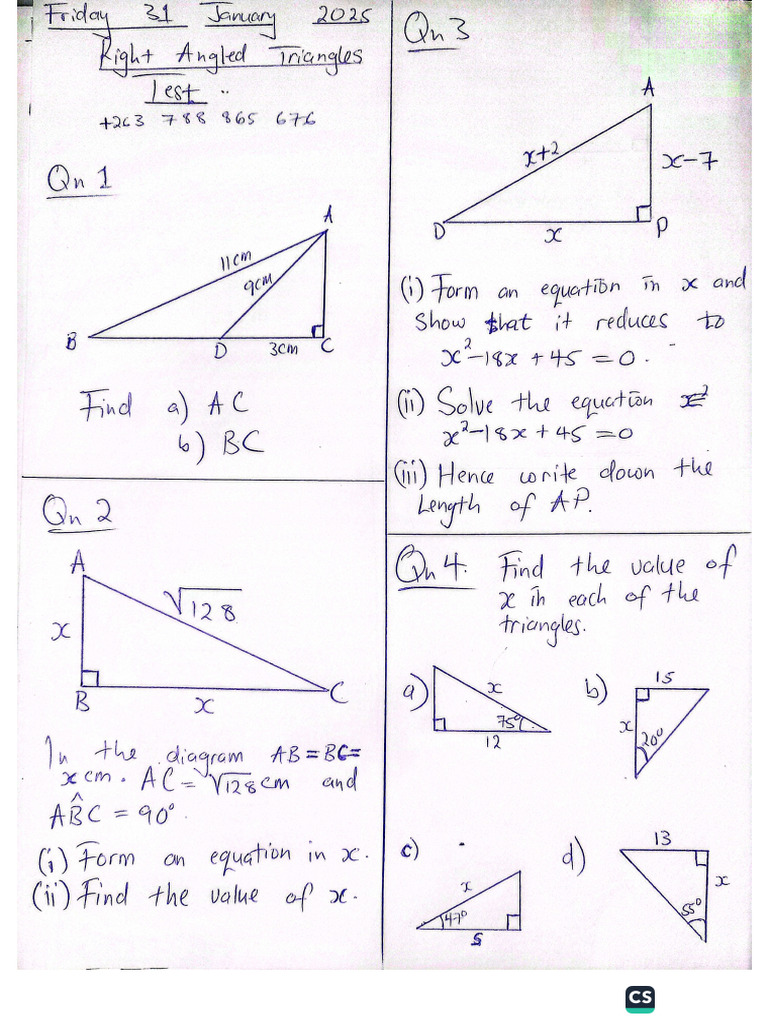 Friday 31 January 2025
Right Angled Triangles
Test ..
+263 788 865 676
Qn 1
A
11cm
9cm
B D 3cm C
Find a) AC
b) BC
Qn 2
A
√128
x
B x C
In the diagram AB = BC =
x cm. AC = √128 cm and
AB̂C = 90°.
(i) Form an equation in x.
(ii) Find the value of x.
Qn 3
A
x+2
x-7
D x P
(i) Form an equation in x and
show that it reduces to
x²-18x+45=0.
(ii) Solve the equation
x²-18x+45=0
(iii) Hence write down the
Length of AP.
Qn 4. Find the value of
x in each of the
triangles.
a) x 75° 12
b) 15 x 20°
c) x 47° 5
d) 13 x 55°
CS